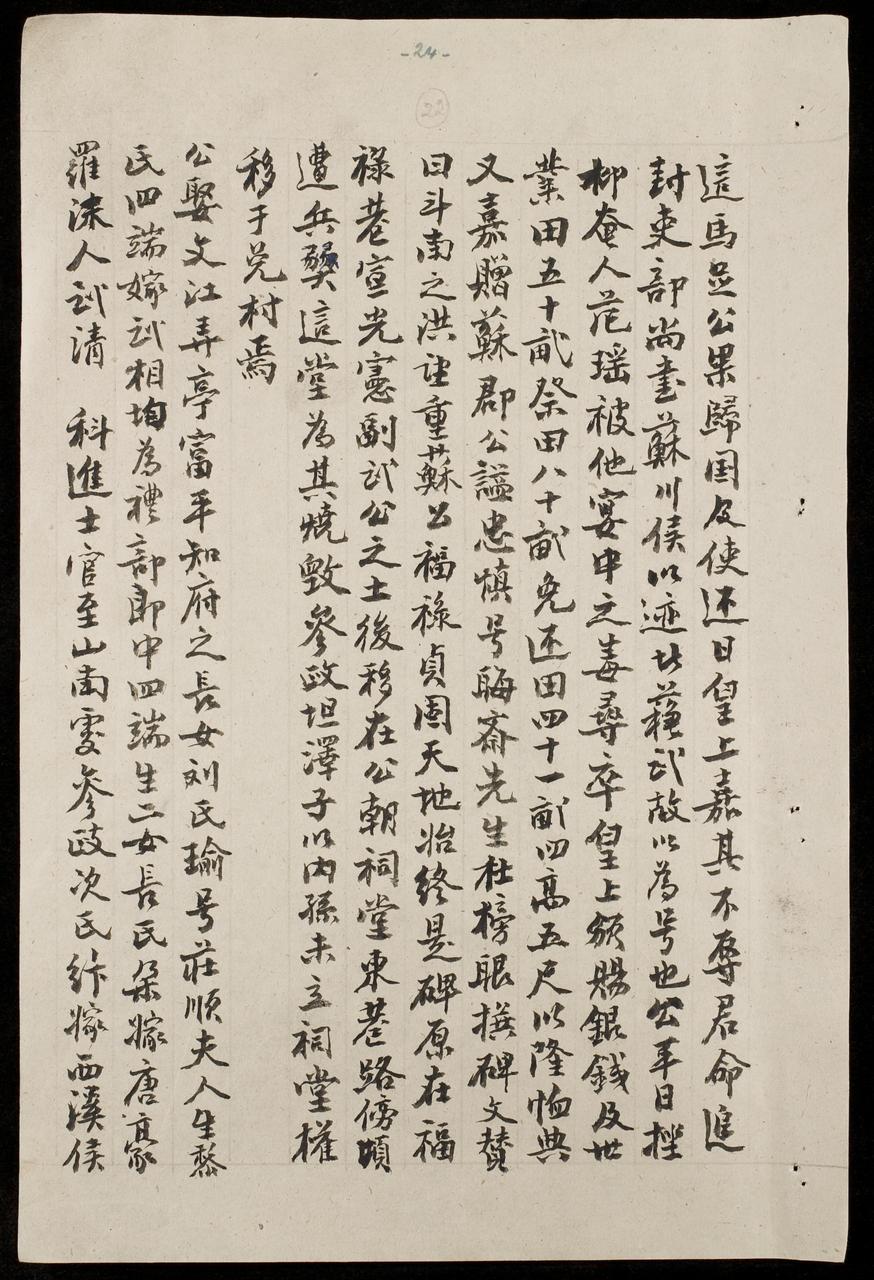 -24-
22
這馬並公果歸国及使还日皇上嘉其不辱君命進
封吏部尚書蘇川侯以迹比蘓武故以為号也公車日挫
柳奄人范瑶被他宴中之毒尋卒皇上頒賜銀錢及世
業田五十畝祭田八十畝免还田四十一畝四高五尺以隆恤典
又嘉贈蘇郡公諡忠慎号晦斎先生杜榜眼撰碑文賛
曰斗南之洪望重蘇公福禄貞固天地始終是碑原在福
禄巷宣光憲副武公之土後移在公朝祠堂東巷路傍頃
遭兵燹這堂為其燒毀參政坦澤子以内孫未立祠堂權
移于兑村焉
公娶文江弄亭富平知府之長女刘氏瑜号荘順夫人生黎
氏四端嫁武相均為禮部郎中四端生二女長氏朶嫁唐豪
羅洡人武清 科進士官至山南處參政次氏紆嫁西溪侯